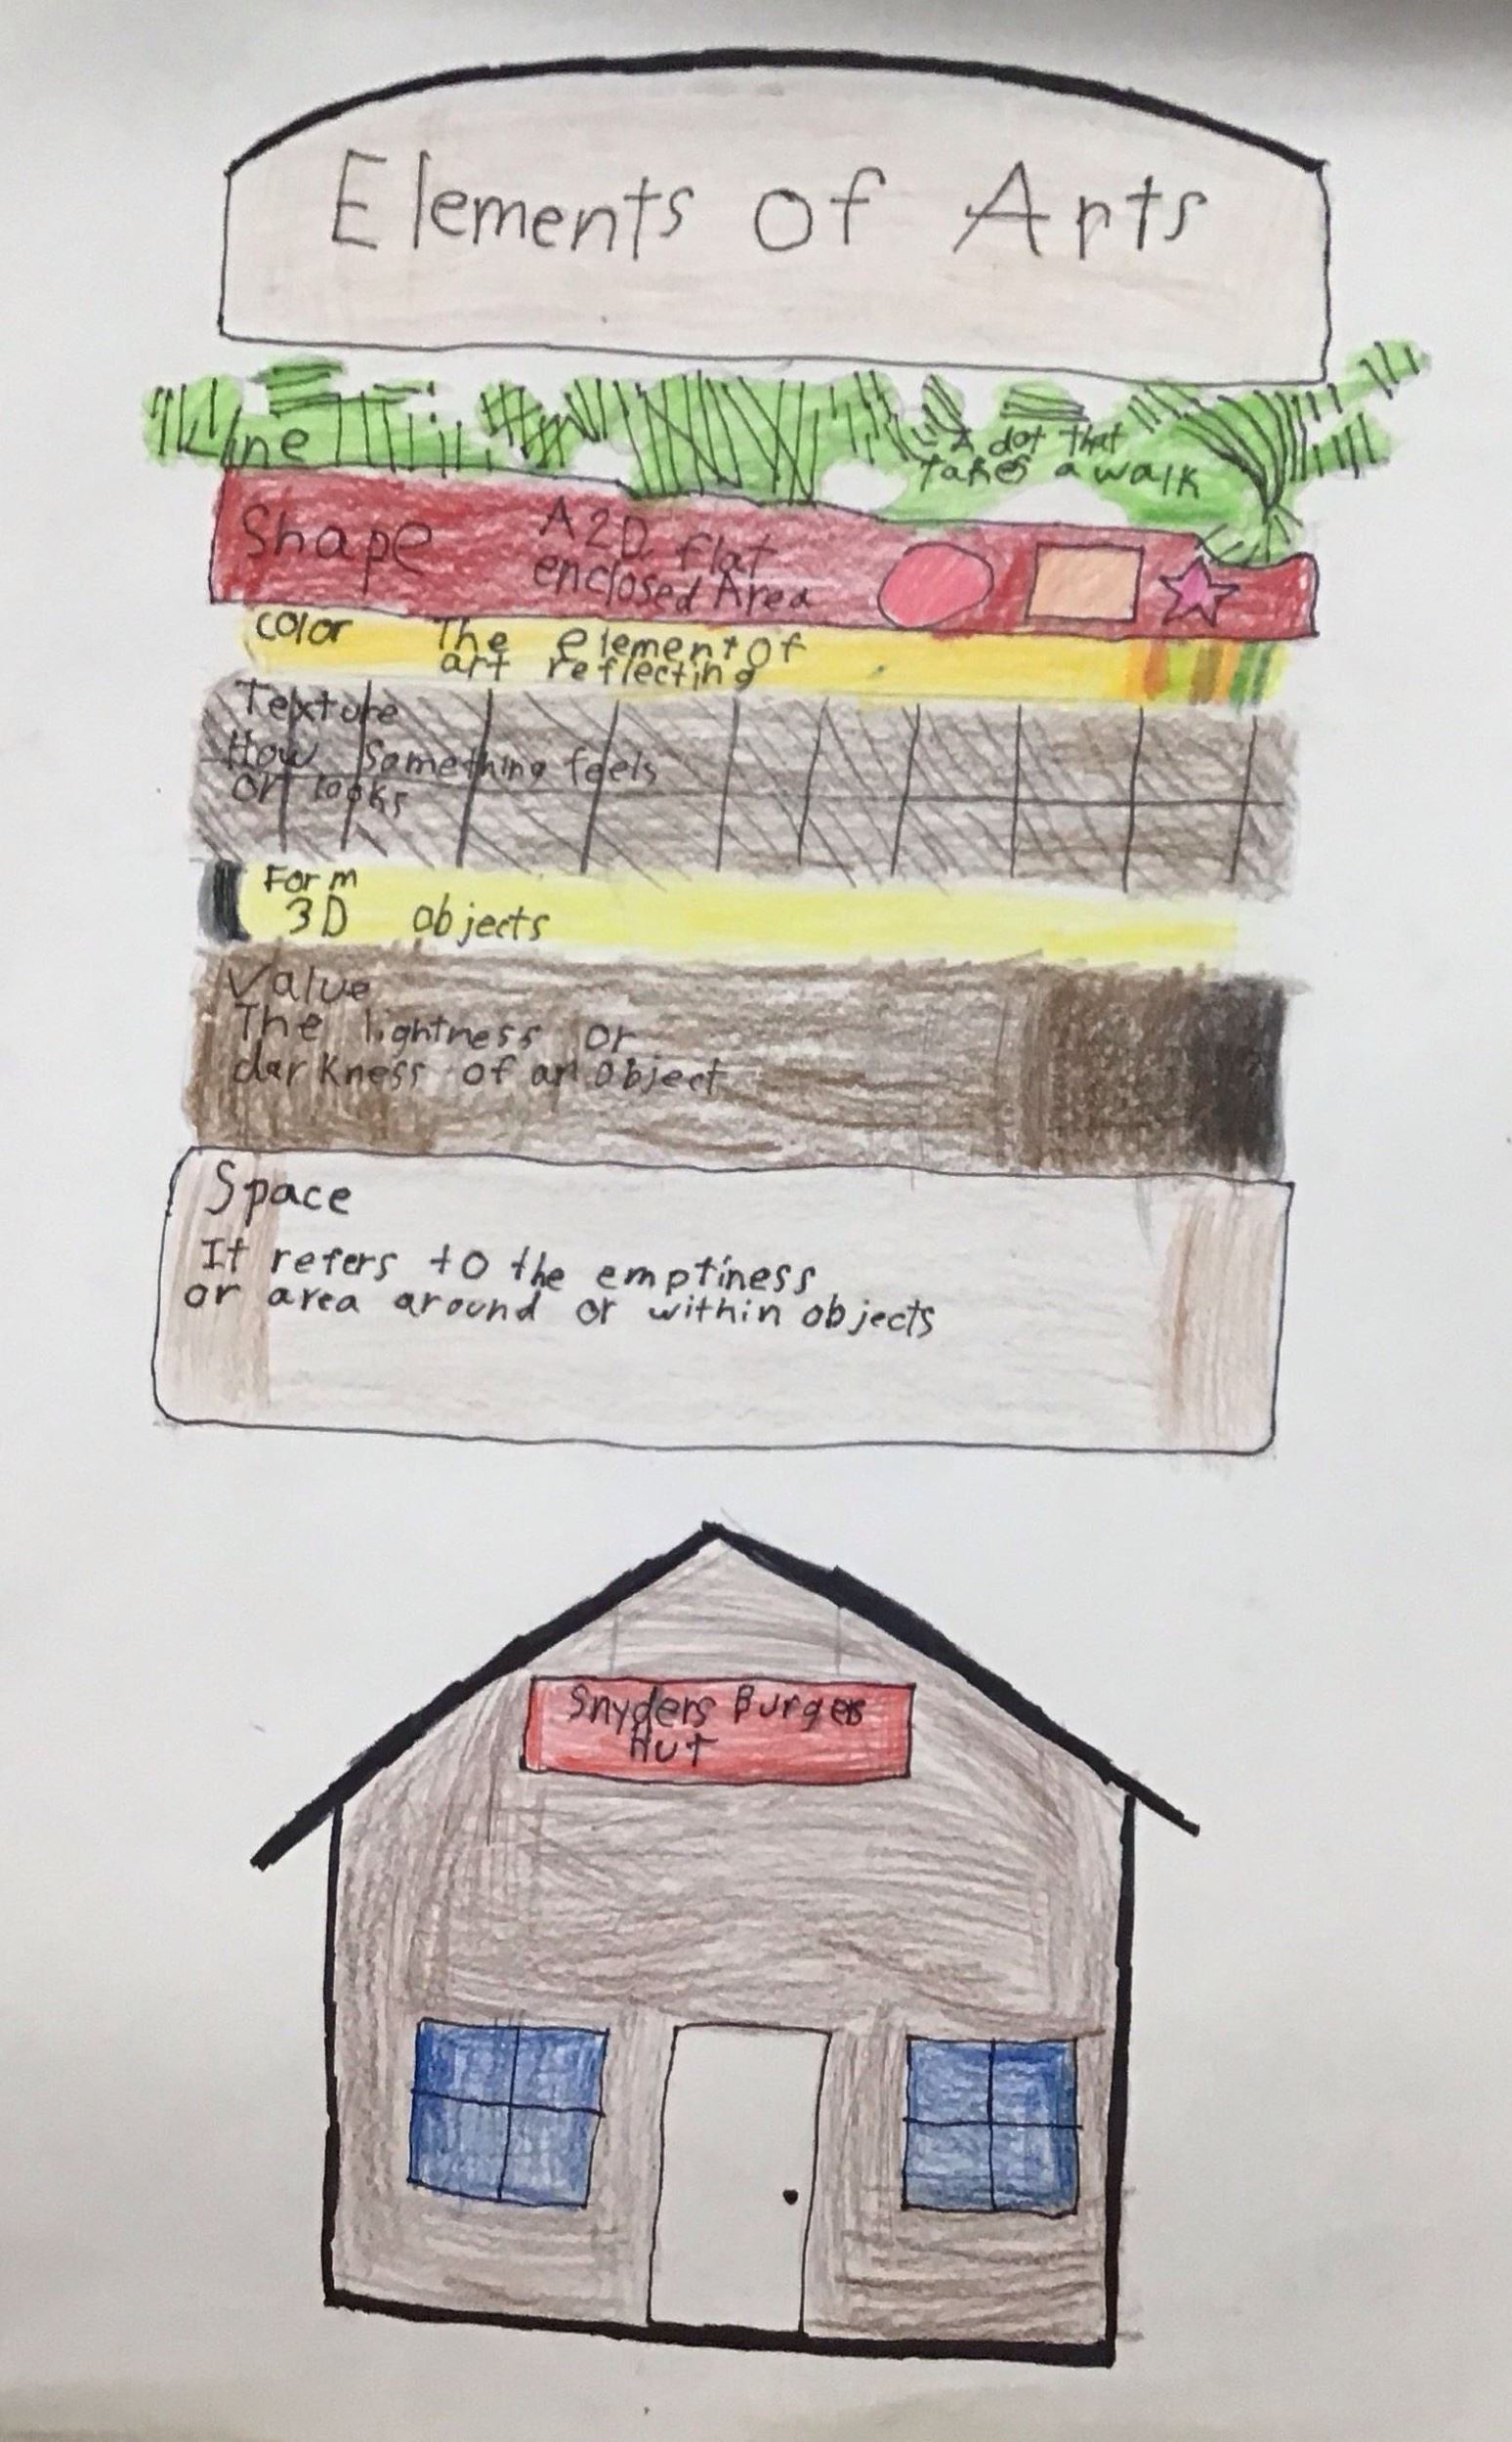 Elements of Arts
Line
A dot that
takes a walk
Shape
A 2D flat
enclosed Area
color
The element of
art reflecting
Texture
How something feels
or looks
Form
3D objects
Value
The lightness or
darkness of an object
Space
It refers to the emptiness
or area around or within objects
Snyders Burger
Hut